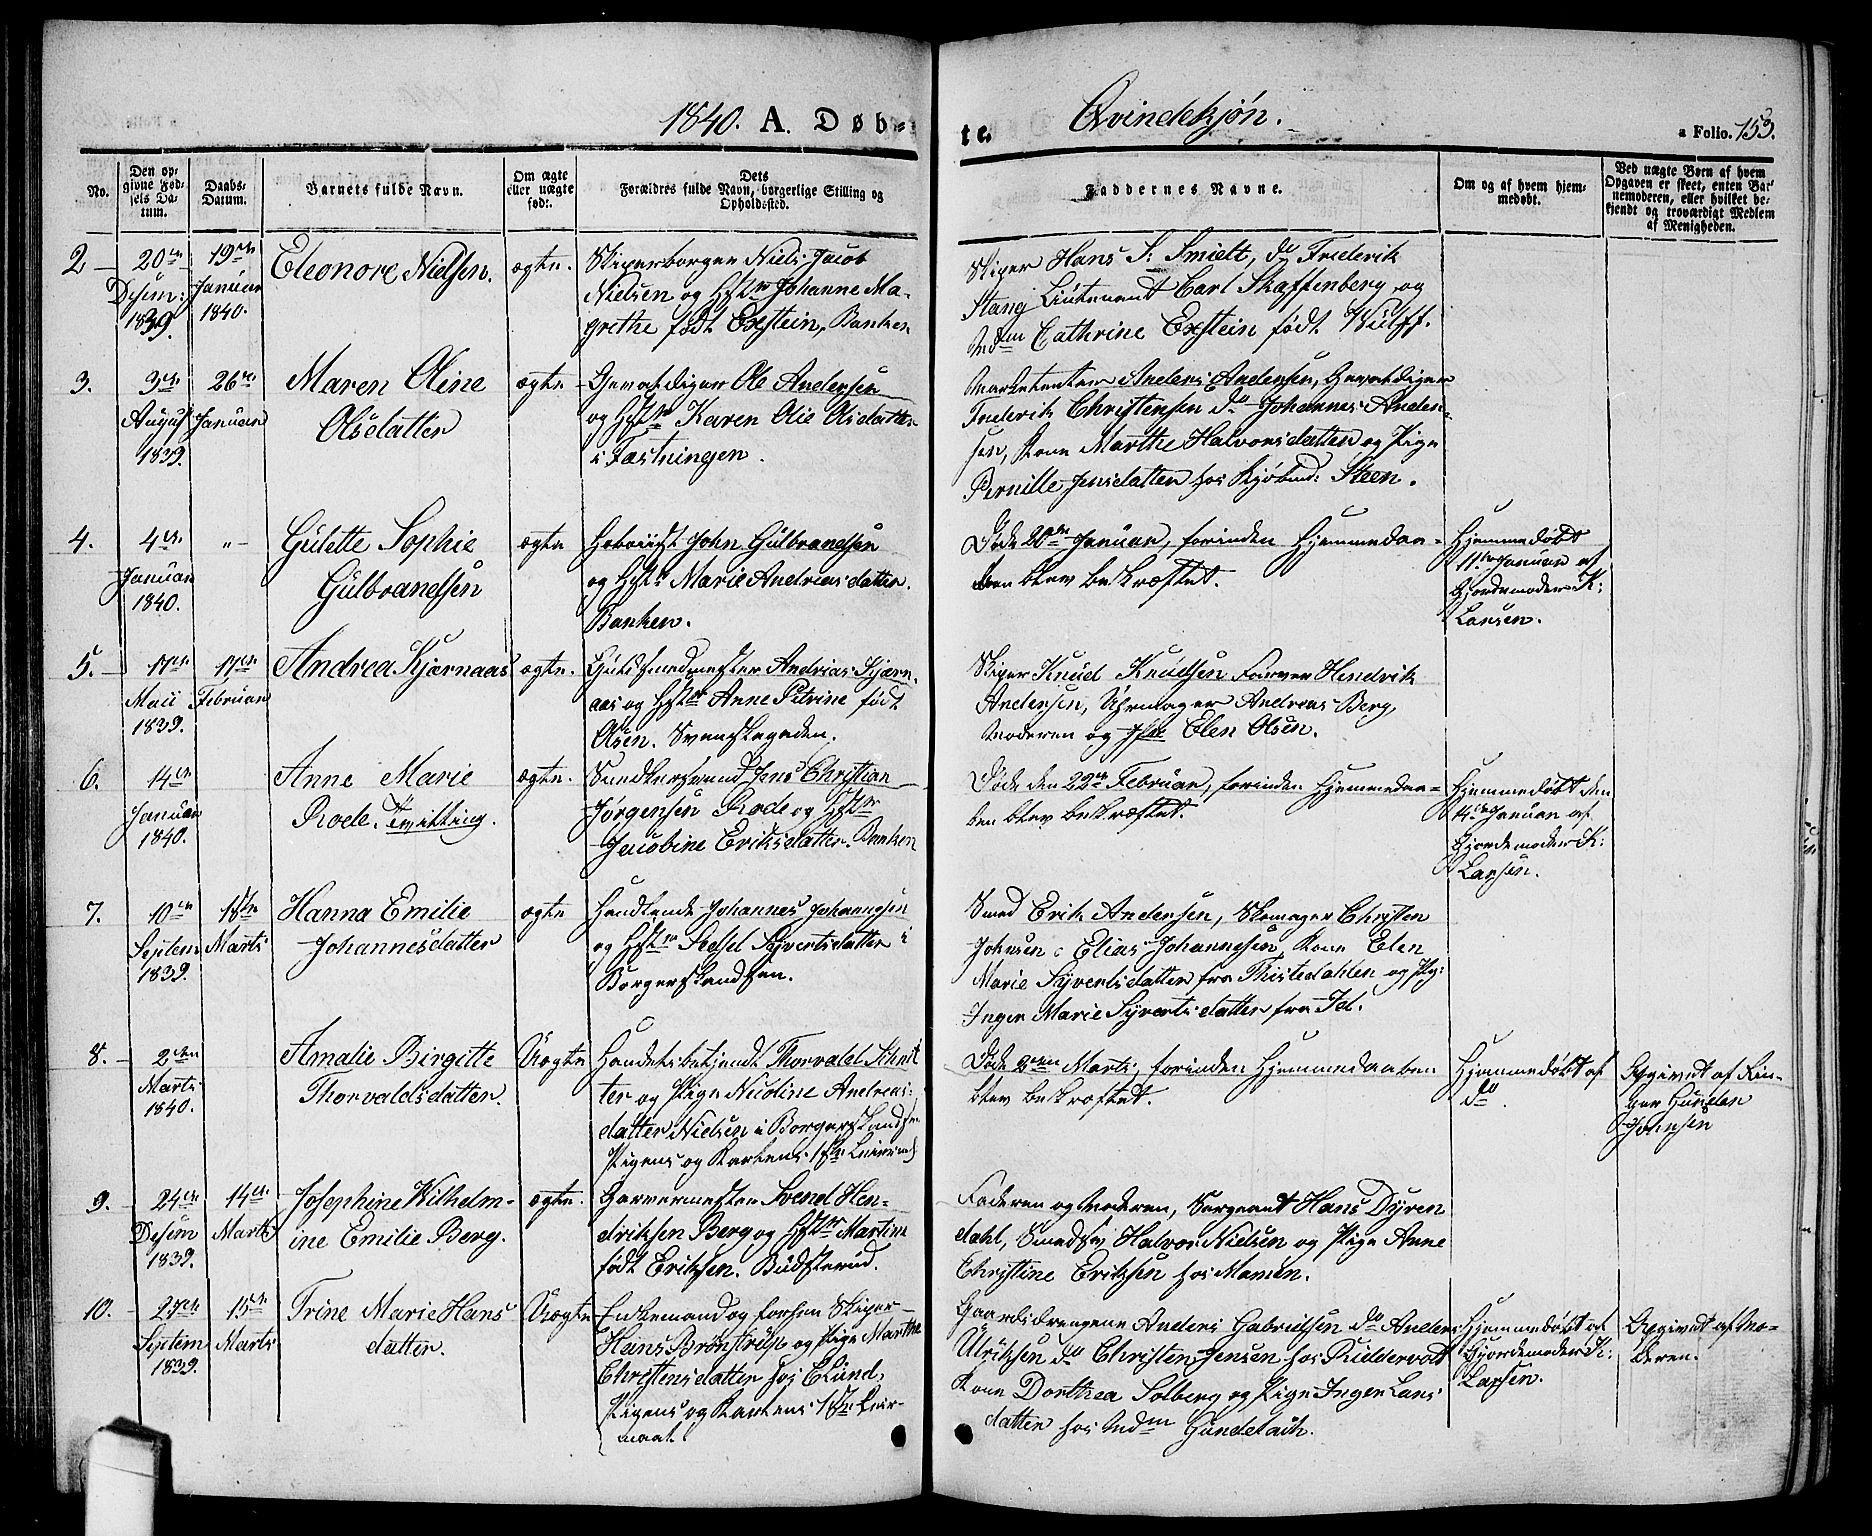 1840. A. Døb-
te. Qvindekjøn.
a Folio. 153.
No.
Den op-
givne Fød-
sels Da-
tum.
Daabs-
Datum.
Barnets fulde Navn.
Om ægte
eller uægte
født.
Dets
Forældres fulde Navn, borgerlige Stilling og
Opholdssted.
Faddernes Navne.
Om og af hvem hjem-
medøbt.
Ved uægte Børn af hvem
Opgaven er skeet, enten Bar-
nemoderen, eller hvilket be-
kjendt og troværdigt Medlem
af Menigheden.
2
20de
Desem:
1839.
19de
Januar
1840.
Eleonore Nielsen.
ægte.
Skiperborger Niels Jacob
Nielsen og Hstr Johanne Ma-
grethe født Exstein, Banken
Skiper Hans S. Smielt, do Frederik
Stang Lieutenant Carl Skaffenberg og
Mdm Cathrine Exstein født Wulff.
3.
3de
August
1839.
26de
Januar
Maren Oline
Olsdatter
ægte
Gevaldiger Ole Andersen
og Hstr Karen Olie Olsdatter
i Fæstningen.
Marketenter Anders Andersen, Gevaldiger
Frederik Christensen do Johannes Ander-
sen, Kone Marthe Halvorsdatter og Pige
Pernille Jensdatter hos Kjøbmd: Steen.
4.
4de
Januar
1840.
"
Gulette Sophie
Gulbrandsen
ægte
Hoboiist John Gulbrandsen
og Hstr Marie Andreasdatter.
Banken.
Døde 20de Januar, forinden Hjemmedaa-
ben blev bekræftet.
Hjemmedøbt
11te Januar af
Gjordemoder K:
Larsen.
5.
17de
Maii
1839.
17de
Februar
Andrea Kjærnaas
ægte.
Guldsmedmester Andreas Kjærn-
aas og Hstr Anne Petrine født
Olsen. Svenskegaden.
Skiper Knud Knudsen Farver Hendrik
Andersen, Uhrmager Andreas Berg,
Moderen og Jfr Elen Olsen.
6.
14de
Januar
1840.
Anne Marie
Rode. Tvilling.
ægte.
Snedkersvend Jens Christian
Jørgensen Rode og Hstr
Jacobine Eriksdatter. Banken
Døde den 22de Februar, forinden Hjemmedaa-
ben blev bekræftet.
Hjemmedøbt den
14de Januar af
Gjordemoder K:
Larsen.
7.
10de
Septem
1839.
18de
Marts
Hanna Emilie
Johannesdatter
ægte
Handlende Johannes Johannesen
og Hstr Sessel Syvertsdatter i
Borgerskandsen.
Smed Erik Andersen, Skomager Christen
Johnsen Elias Johannesen Kone Elen
Marie Syvertsdatter fra Thistedahlen og Pig:
Inger Marie Syvertsdatter fra Id.
8.
2den
Marts
1840.
Amalie Birgitte
Thorvaldsdatter.
Uægte
Handelsbetjendt Thorvald Schnit
ter og Pige Nicoline Andreas-
datter Nielsen i Borgerskands
Pigens og Karlens 1ste Leierm
Døde Marts, forinden Hjemmedaaben
blev bekræftet.
Hjemmedøbt af
do.
Opgivet af Rin-
ger
Johnsen
9.
24de
Desem
1839.
14de
Marts
Josephine Wilhelm-
ine Emilie Berg.
ægte.
Garvermester Svend Hen-
driksen Berg og Hstr Martine
født Eriksen. Budsterud.
Faderen og Moderen, Sergeant Hans Dyren
dahl, Smedsv Halvor Nielsen og Pige Anne
Christine Eriksen hos Mamen.
10.
27de
Septem
1839.
15de
Marts
Trine Marie Hans
datter.
Uægte
Enkemand og forhen Skiper
Hans Brønstrup og Pige Marthe
Christensdatter hos E Lund,
Pigens og Karlens 1ste Leier-
maal.
Gaardsdrengene Anders Gabrielsen do Anders
Ulriksen do Christen Jensen hos Riddervold
Kone Dorthea Solberg og Pige Inger Lars
datter hos Mdm Gundelach.
Hjemmedøbt af
Gjordemoder K:
Larsen.
Opgivet af Mo-
deren.